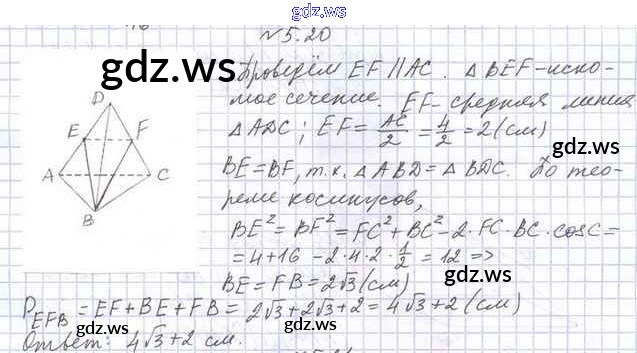 gdz.ws
N 5.20
gdz.ws
gdz.ws
Проведём EF || AC. △ BEF – иско-
мое сечение. EF – средняя линия
△ ADC; EF = AC/2 = 4/2 = 2 (см)
D
E F
A C
B
BE = BF, т.к. △ ABD = △ BDC. По тео-
реме косинусов,
gdz.ws
BE² = BF² = FC² + BC² – 2 · FC · BC · cos C =
= 4 + 16 – 2 · 4 · 2 · 1/2 = 12 =>
gdz.ws
BE = FB = 2√3 (см)
P EFB = EF + BE + FB = 2√3 + 2√3 + 2 = 4√3 + 2 (см)
gdz.ws
gdz.ws
Ответ: 4√3 + 2 см.
gdz.ws